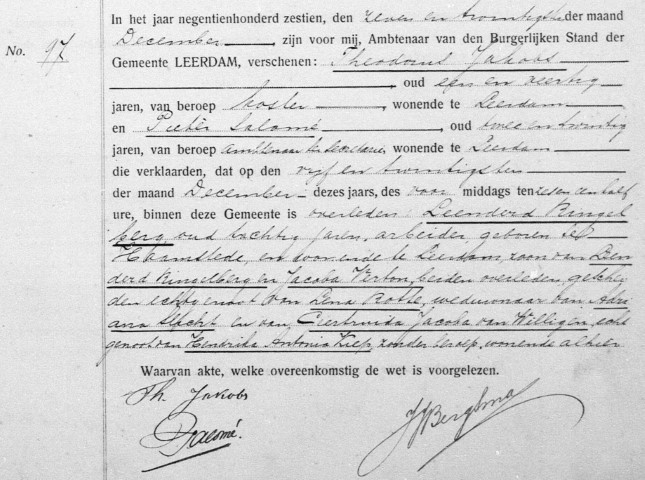 In het jaar negentienhonderd zestien, den zeven en twintigste der maand
December, zijn voor mij, Ambtenaar van den Burgerlijken Stand der
No. 97
Gemeente LEERDAM, verschenen: Theodorus Jakobs
, oud een en veertig
jaren, van beroep koster, wonende te Leerdam
en Pieter Salomé, oud twee en twintig
jaren, van beroep ambtenaar ter secretarie, wonende te Leerdam
die verklaarden, dat op den vijf en twintigsten
der maand December dezes jaars, des voor middags ten zeven en half
ure, binnen deze Gemeente is overleden: Leenderd Ringel
berg, oud tachtig jaren, arbeider, geboren te
Haamstede en wonende te Leerdam, zoon van Leen
derd Ringelberg en Jacoba Verton, beiden overleden, geschei
den echtgenoot van Lena Rotte, weduwnaar van Adri
ana en van Geertruida Jacoba van Willigen, echt
genoot van Hendrika Antonia Kiep, zonder beroep, wonende alhier
Waarvan akte, welke overeenkomstig de wet is voorgelezen.
Th. Jakobs
PSalomé.
JJBergsma